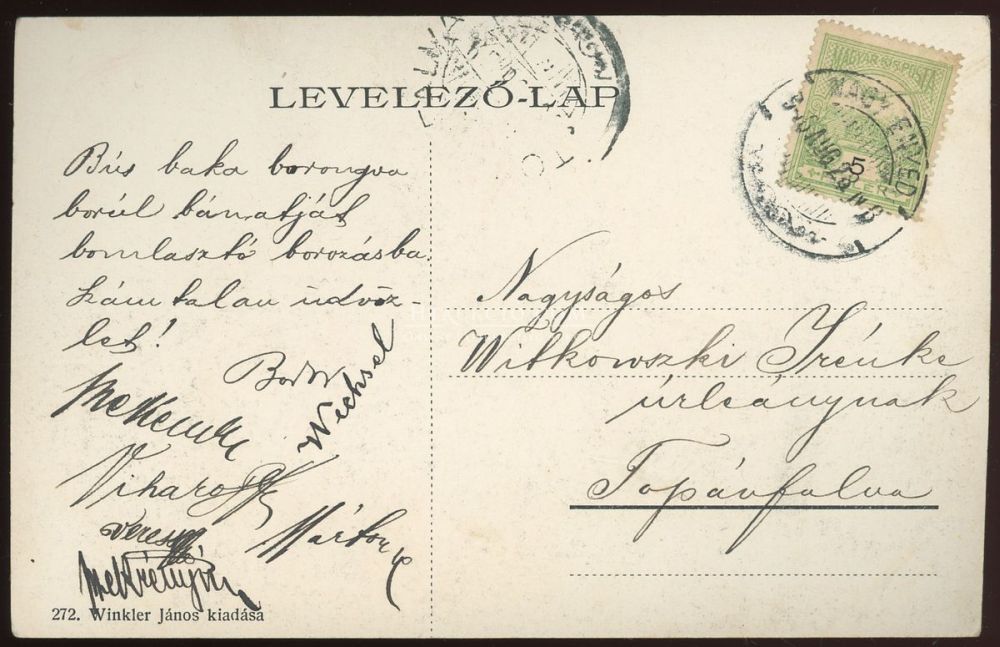 LEVELEZŐ-LAP
MAGYAR KIR. POSTA
5
NAGY-ENYED
Bús baka borongva
borúl bánatját
bomlasztó borozásba.
Számtalan üdvöz-
let!
Wechsel
Viharos
Veress
Márton
Nagyságos
Witkowszki Irénke
úrleánynak
Topánfalva
272. Winkler János kiadása